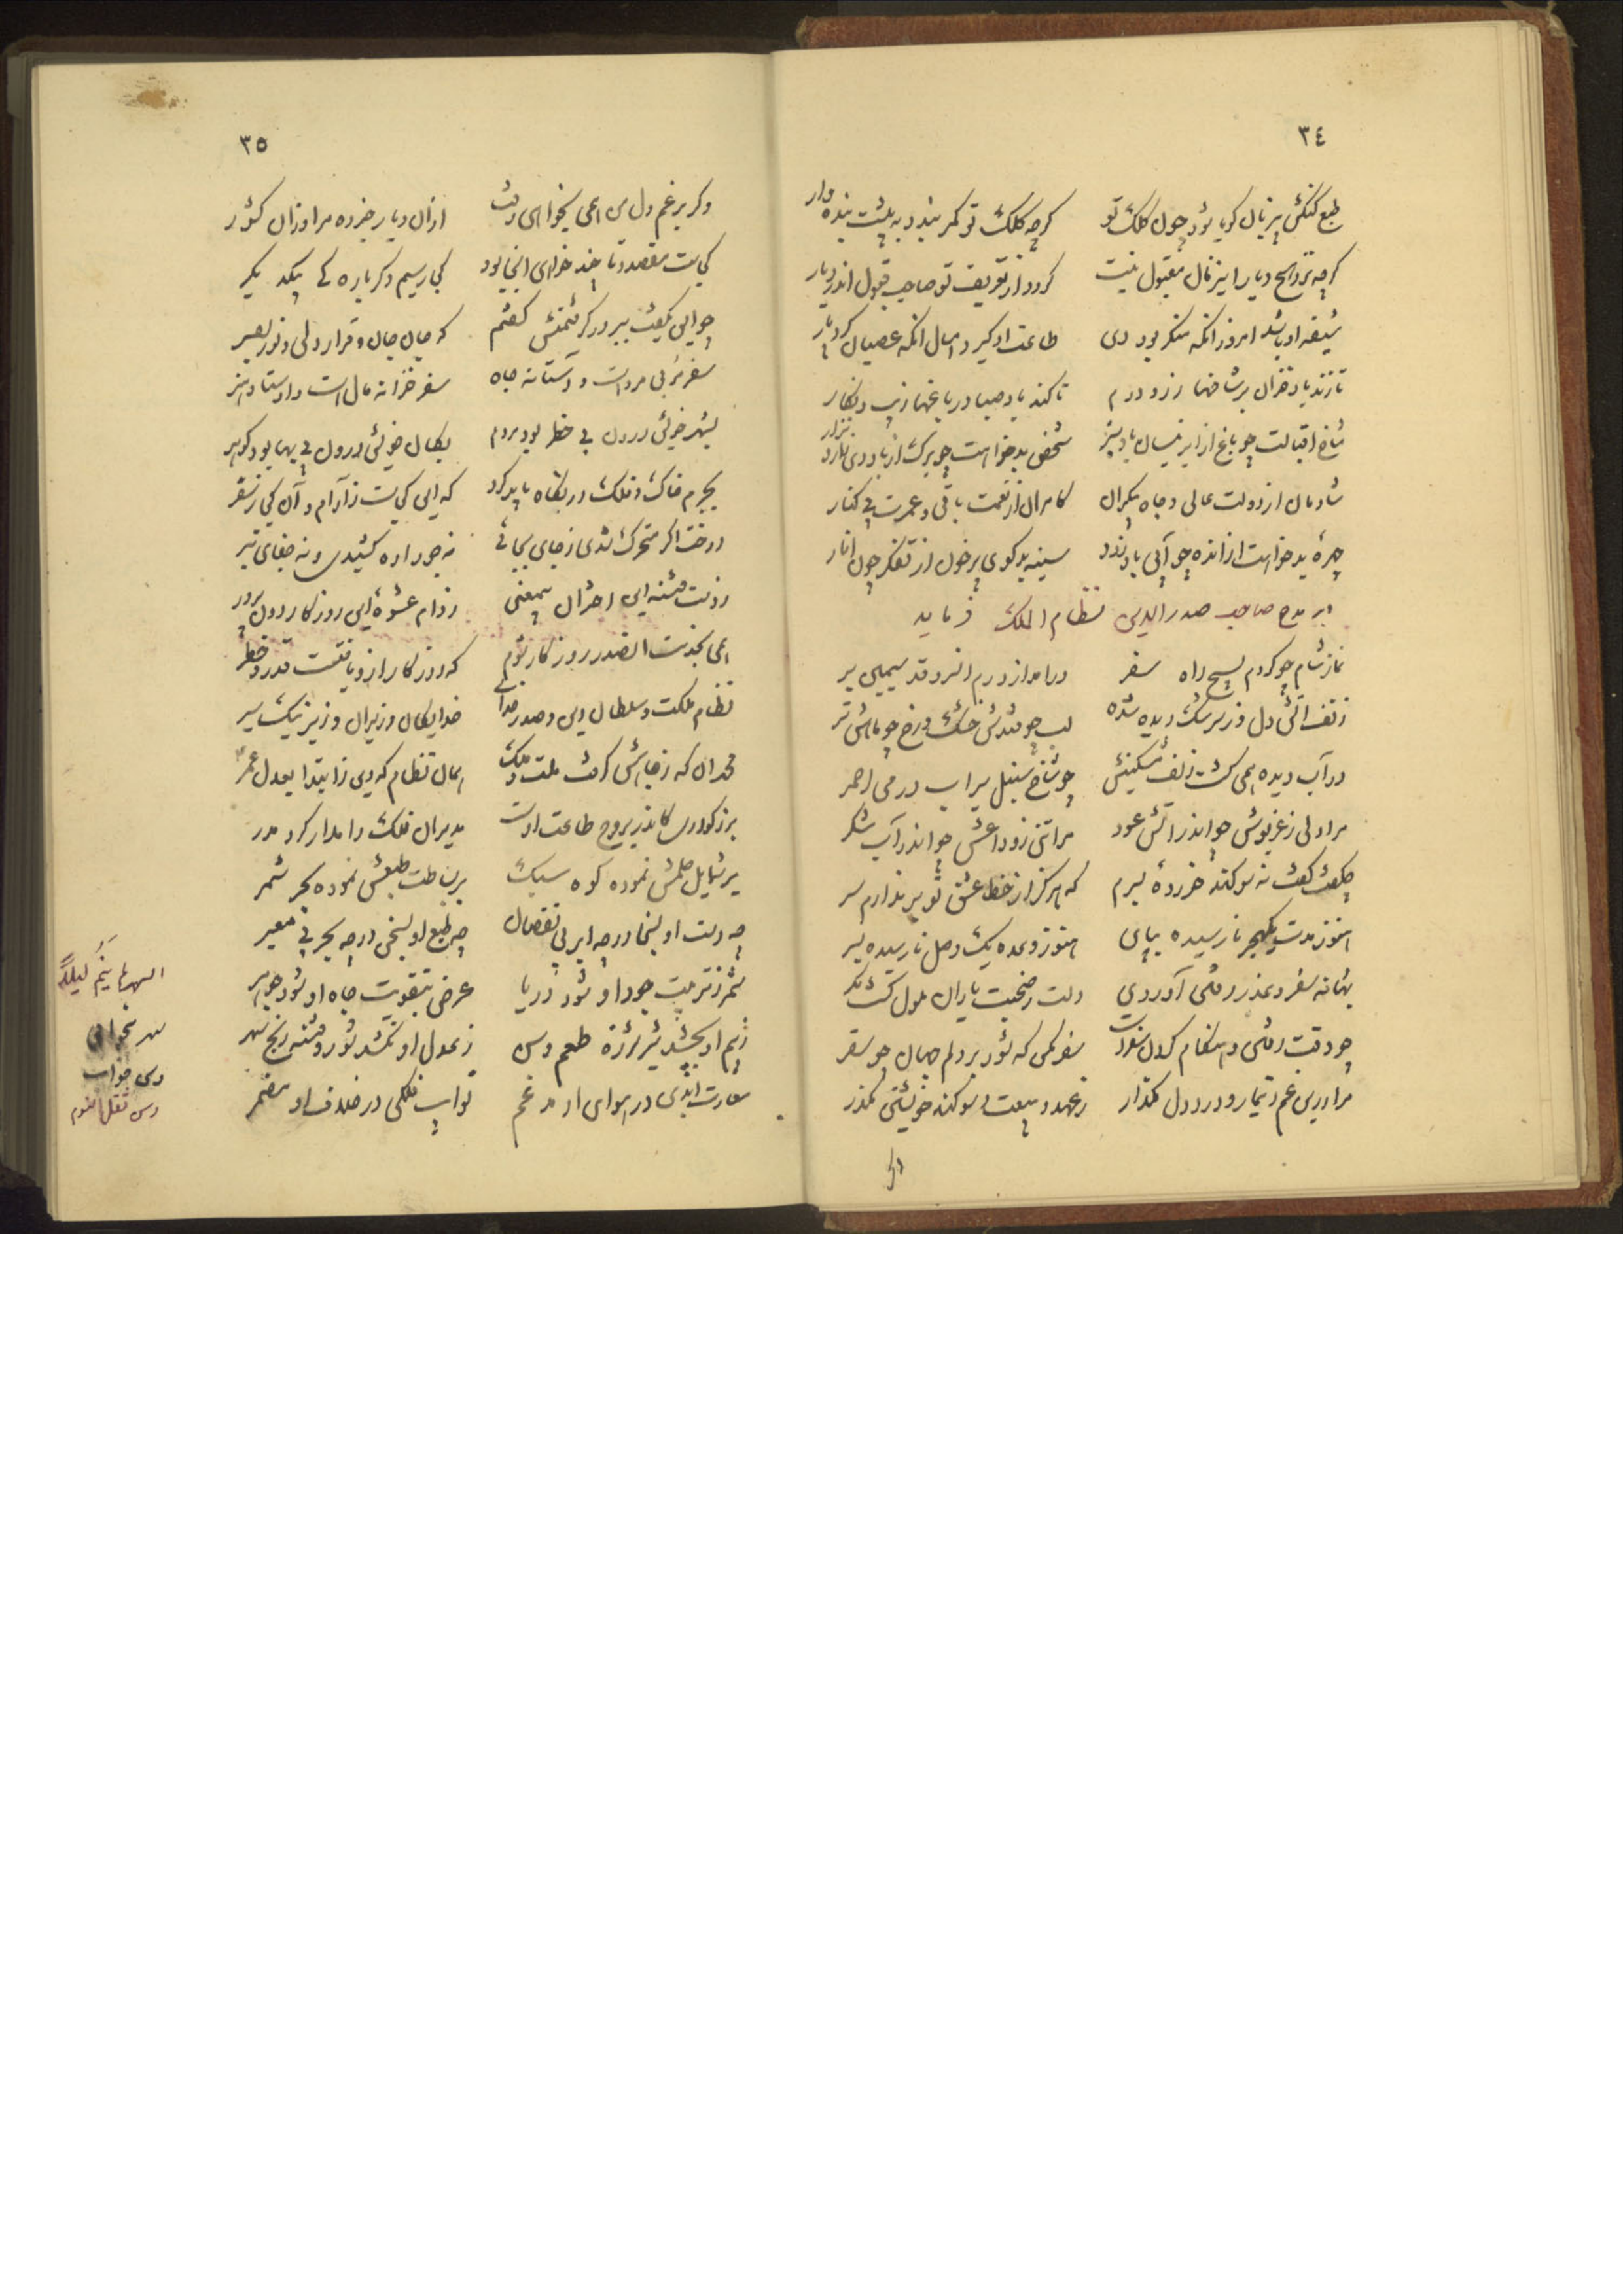 ٣٤
طبع کنکش بیزبان کویا شود چون کلک تو کرچه کلک تو کمر بندد به پیشت بنده وار
کرچه نزد اهل دیار این زمان مقبول نیست کردد از تعریف تو صاحب قبول اندر دیار
شیفه او باشد امروز انکه منکر بود دی طاعت او کیرد امسال انکه عصیان کرد پار
تا زند باد خزان بر شاخها زر و درم تا کند باد صبا در باغها زیب و نکار
شاخ اقبالت چو باغ از ابر نیسان باد سبز شخص بدخواهت چو برک از باد دی زرد نزار
شادمان از دولت عالی و جاه بیکران کامران از نعمت باقی و عمر بی کنار
چهرۀ بدخواهت از انده چو آبی باد زرد سینه بدکوی پرخون از تفکر چون انار
در مدح صاحب صدرالدین نظام الملک فرماید
نماز شام چو کردم بسیج راه سفر درامد از درم انسرو قد سیمین بر
ز تف اتش دل وز سرشک دیده شده لب چو قندش خشک و رخ چو ماهش تر
در آب دیده همی کشت زلف مشکینش چو شاخ سنبل سیراب در می احمر
مرا دلی ز غریوش چو اندر اتش عود مرا تنی ز وداعش چو اندر آب شکر
چکفت کفت نه سوکند خوردۀ بسرم که هرکز از خط عشق تو بر ندارم سر
هنوز مدت یک هجر نارسیده بپای هنوز وعده یک وصل نارسیده بسر
بهانه سفر و عذر رفتن آوردی دلت ز صحبت یاران ملول کشت مکر
چه وقت رفتن و هنکام کردن سفرت سفر مکن که شود بر دلم جهان چو سقر
مرا درین غم و تیمار و درد دل مکذار ز عهد و بیعت و سوکند خویشتن مکذر
وکر
٣٥
وکر برغم دل من همی بخواهی رفت ازان دیار خبر ده مرا وزان کشور
کجاست مقصد و تا چند خواهی انجا بود کجا رسیم دکرباره کی بیکدیکر
چو این بکفت ببر در کرفتمش کفتم که جان جان و قرار دلی و نور بصر
سفر مربی مردست و آستانه جاه سفر خزانه مال است و اوستاد هنر
بشهر خویش درون بی خطر بود مردم بکان خویش درون بی بها بود کوهر
بجرم خاک و فلک در نکاه باید کرد که این کجاست ز آرام و آن کجا ز سفر
درخت اکر متحرک شدی ز جای بجای نه جور اره کشیدی و نه جفای تبر
ز دام عشوۀ این روزکار دون پرور
همی بخدمت انصدر روزکار شوم که روزکار ازو یافتست قدر و خطر
نظام ملکت و سلطان دین و صدر خدا خدایکان وزیران وزیر نیک سیر
محمد ان که ز جاهش کرفت ملت و ملک همان نظام که دین ز ابتدا بعدل عمر
بزرکواری کاندر بروج طاعت اوست مدبران فلک را مدار کرد مدر
بر شمایل حلمش نموده کوه سبک بر بساطت طبعش نموده بحر شمر
چه دست او بسخا در چه ابر بی نقصان چه طبع او بسخن در چه بحر بی معبر
ثمر ز تربیت جود او شود دریا عرض بتقویت جاه او شود جوهر
ز بیم او بچشد شیر شرزه طعم وسن ز عدل او نکشد شور و فتنه رنج سهر
سعادت ابدی در هوای او مدغم نوایب فلکی در خلاف او مضمر
السهر ما ینم لیلاً
سهر بیخوابی
وسن خواب
وسن ثقل النوم